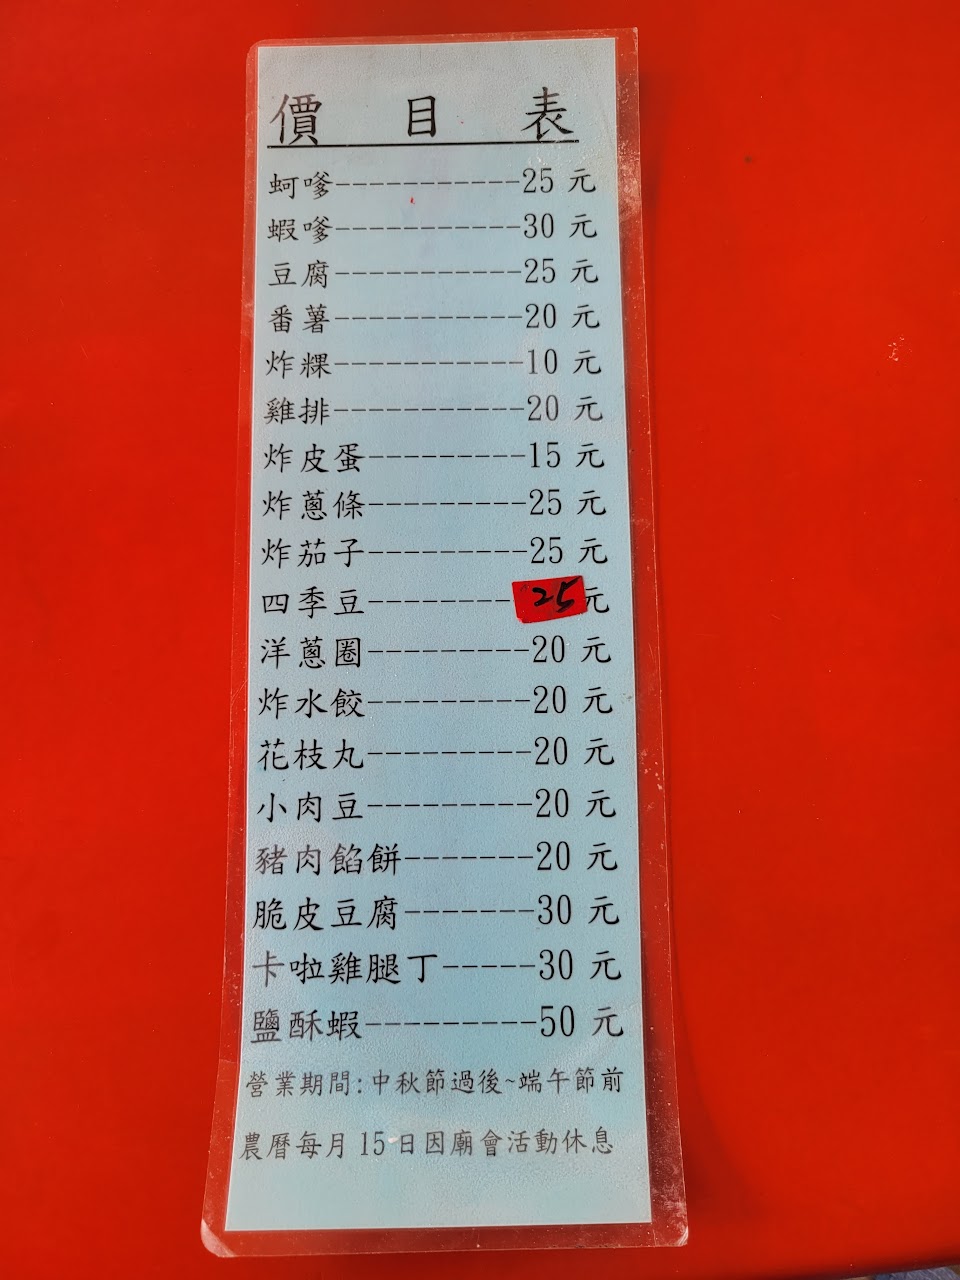 價目表
蚵嗲-----------25 元
蝦嗲-----------30 元
豆腐-----------25 元
番薯-----------20 元
炸粿-----------10 元
雞排-----------20 元
炸皮蛋---------15 元
炸蔥條---------25 元
炸茄子---------25 元
四季豆--------25元
洋蔥圈---------20 元
炸水餃---------20 元
花枝丸---------20 元
小肉豆---------20 元
豬肉餡餅-------20 元
脆皮豆腐-------30 元
卡啦雞腿丁-----30 元
鹽酥蝦---------50 元
營業期間:中秋節過後~端午節前
農曆每月 15 日因廟會活動休息